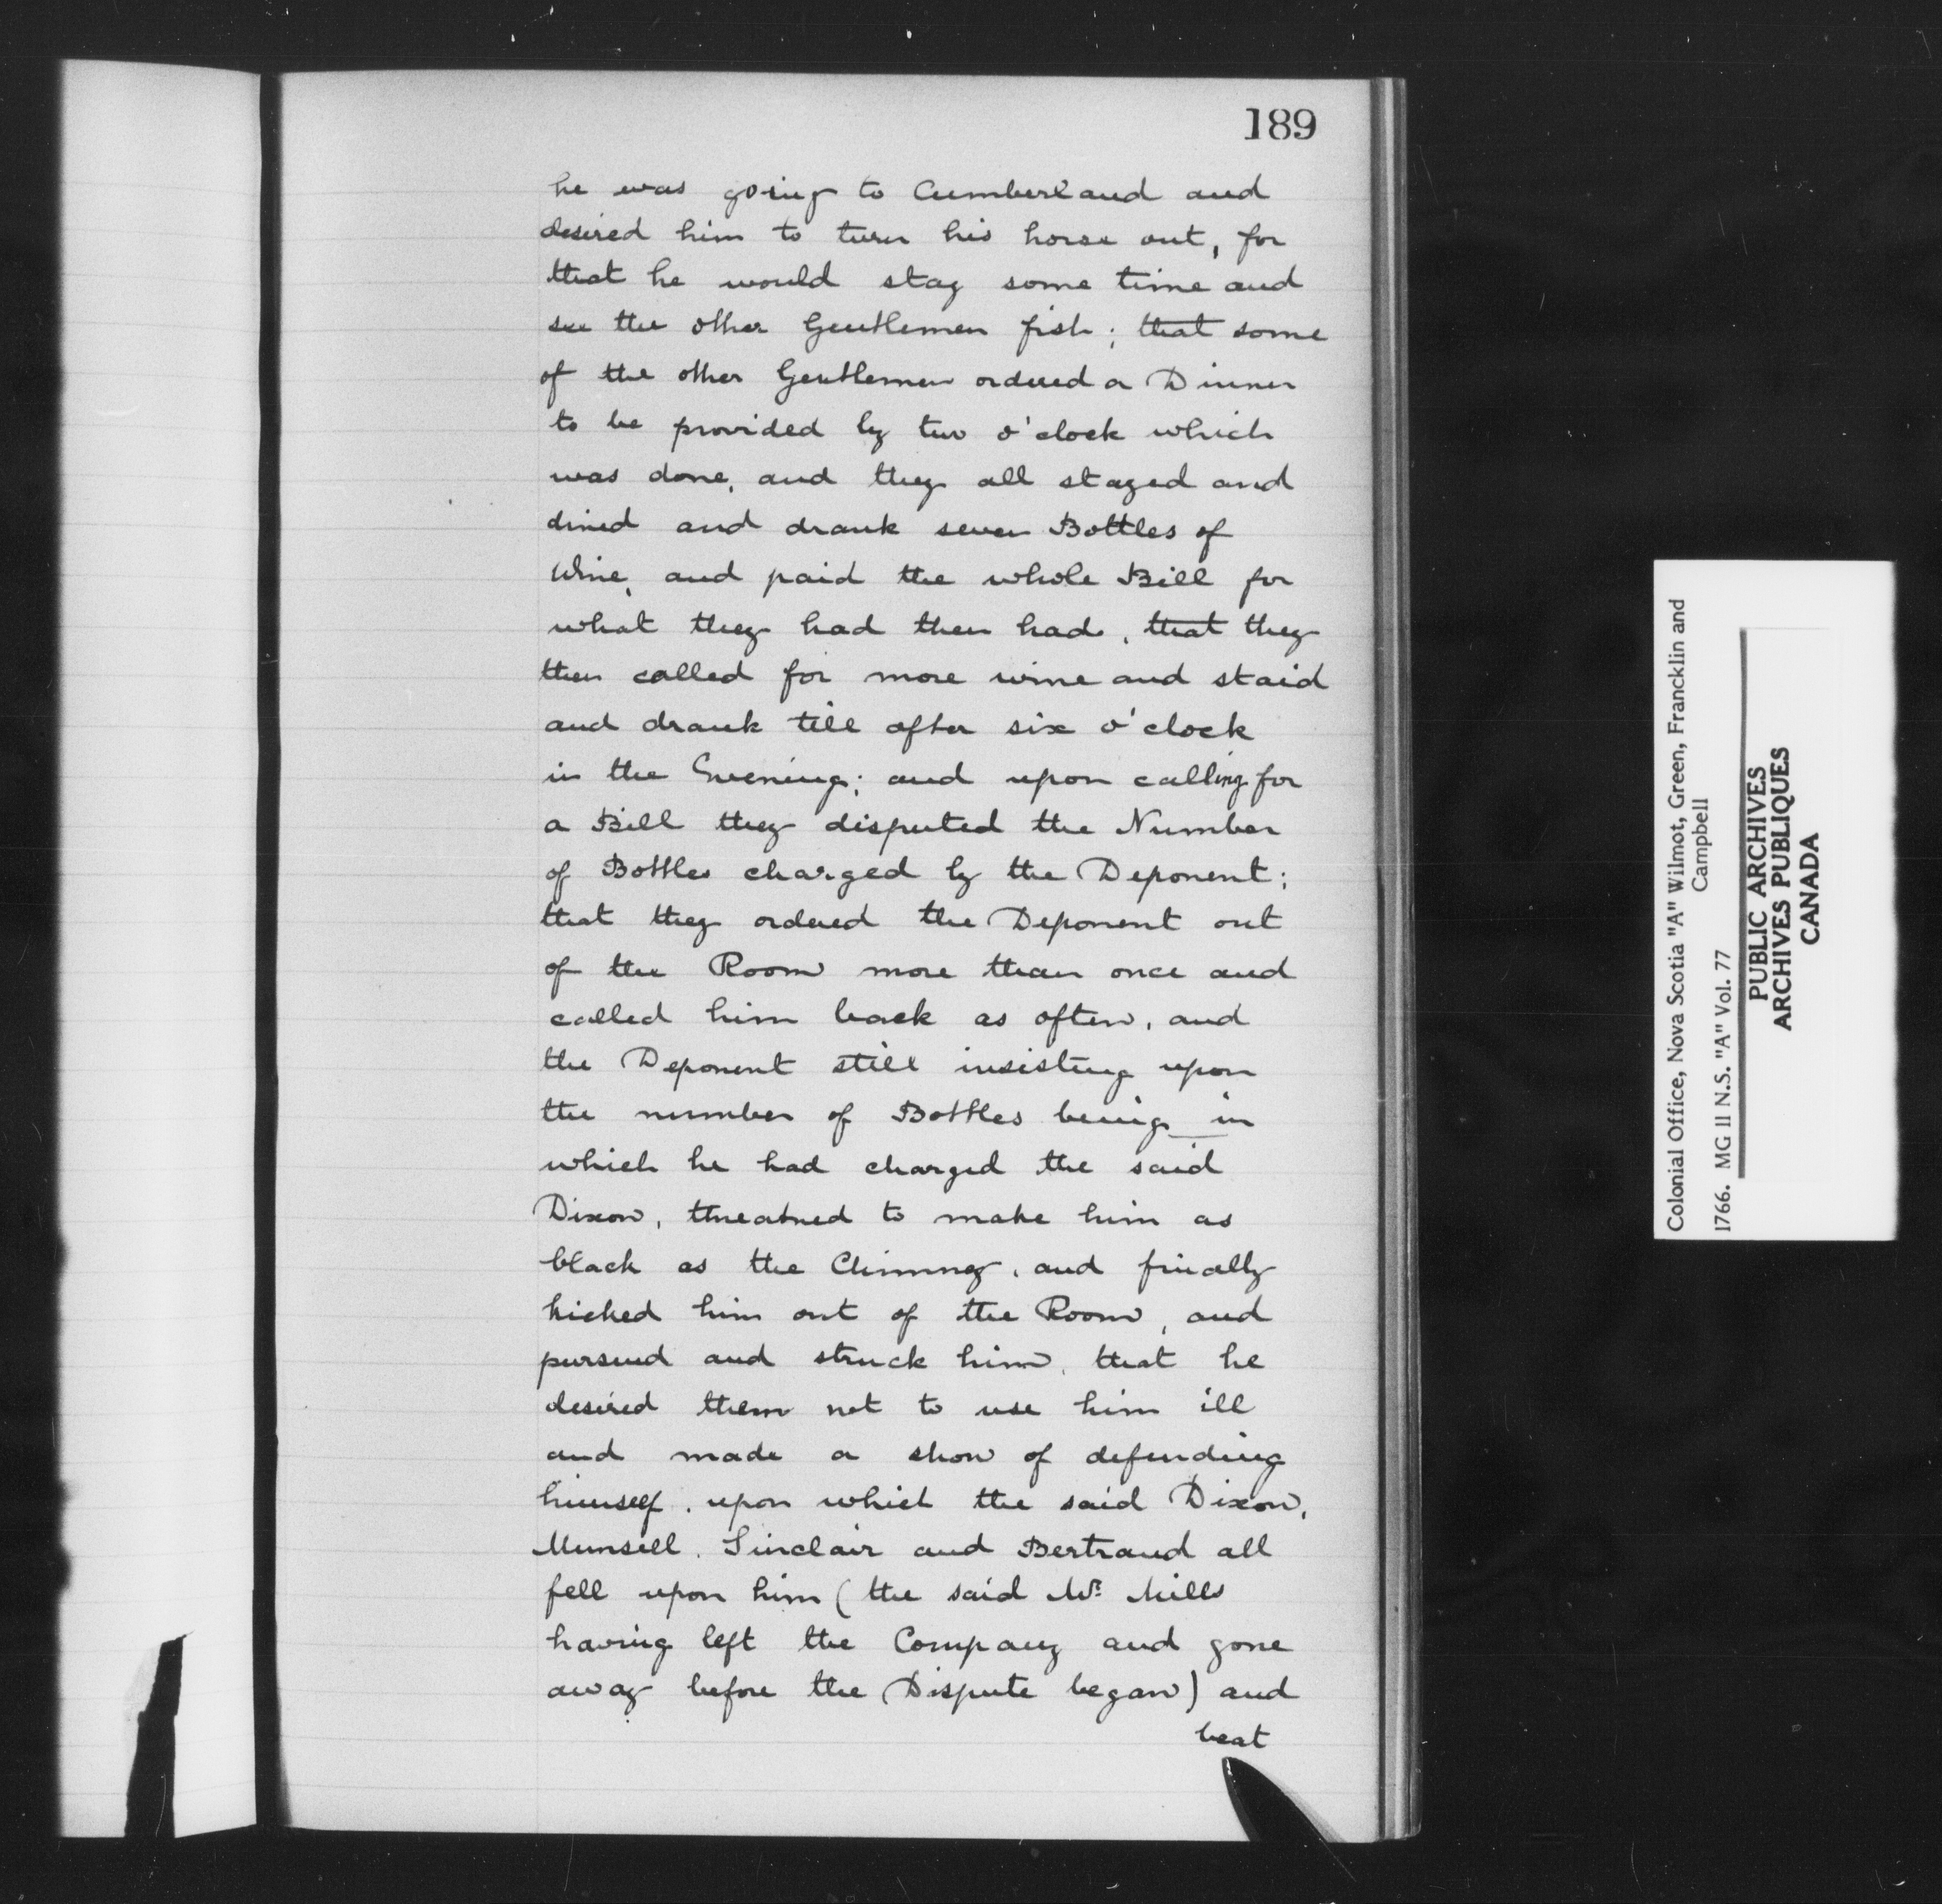 189
he was going to Cumberland and
desired him to turn his horse out, for
that he would stay some time and
see the other Gentlemen fish; that some
of the other Gentlemen ordered a Dinner
to be provided by two o'clock which
was done, and they all stayed and
dined and drank seven Bottles of
Wine, and paid the whole Bill for
what they had then had, that they
then called for more wine and staid
and drank till after six o'clock
in the Evening; and upon calling for
a Bill they disputed the Number
of Bottles charged by the Deponent;
that they ordered the Deponent out
of the Room more than once and
called him back as often, and
the Deponent still insisting upon
the number of Bottles being in
which he had charged the said
Dixon, threatned to make him as
black as the Chimney, and finally
kicked him out of the Room, and
pursued and struck him, that he
desired them not to use him ill
and made a show of defending
himself, upon which the said Dixon,
Munsell, Sinclair and Bertrand all
fell upon him (the said Mr. Mills
having left the Company and gone
away before the Dispute began) and
beat
Colonial Office, Nova Scotia "A" Wilmot, Green, Francklin and
Campbell
1766. MG 11 N.S. "A" Vol. 77
PUBLIC ARCHIVES
ARCHIVES PUBLIQUES
CANADA